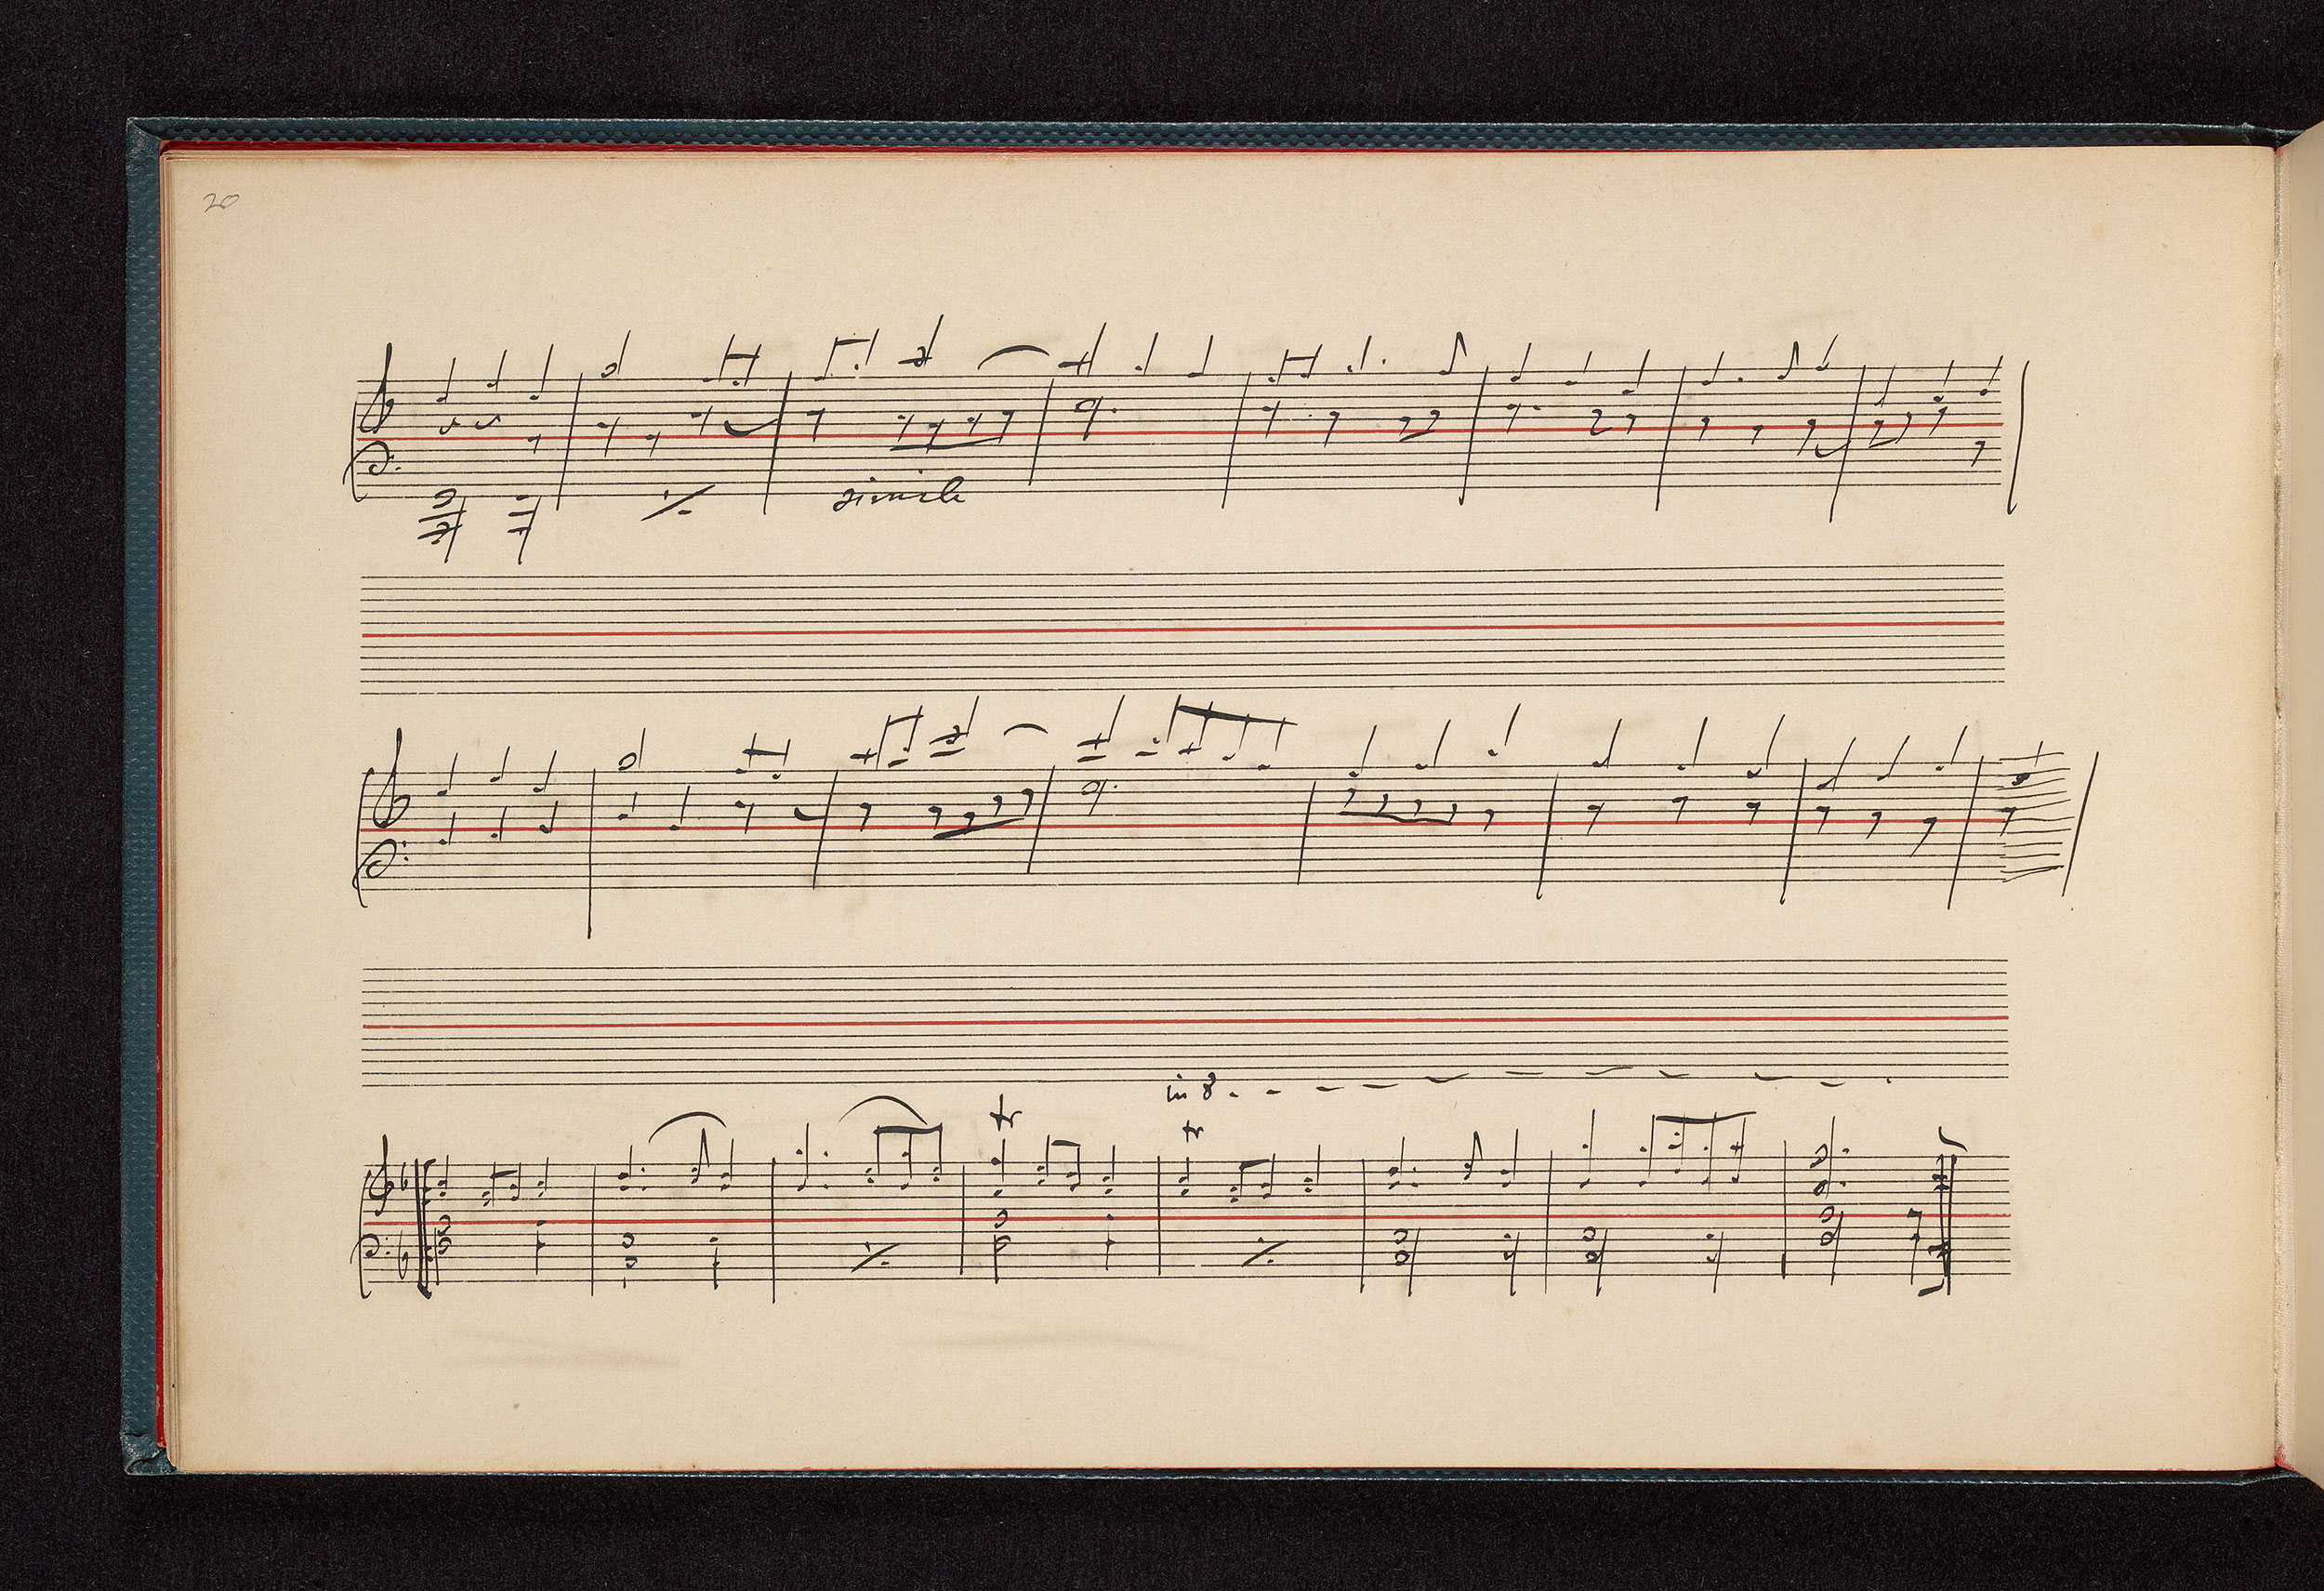 20
simile
in 8
tr
tr